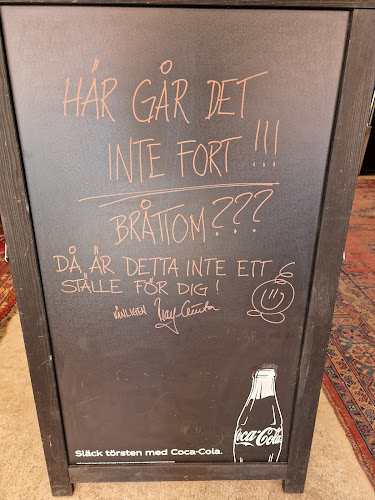 HÄR GÅR DET
INTE FORT !!!
BRÅTTOM???
DÅ ÄR DETTA INTE ETT
STÄLLE FÖR DIG !
VÄNLIGEN
Coca-Cola
Släck törsten med Coca-Cola.